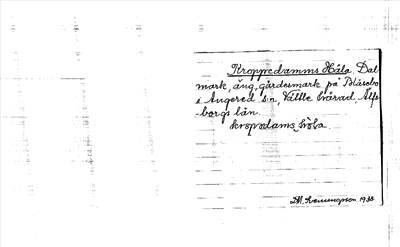 Kroppedamms Håla. Dal
mark, äng, gårdesmark på Blåsebo
i Angered s:n, Vättle härad, Älfs
-borgs län.
kropodams hôla.
1938